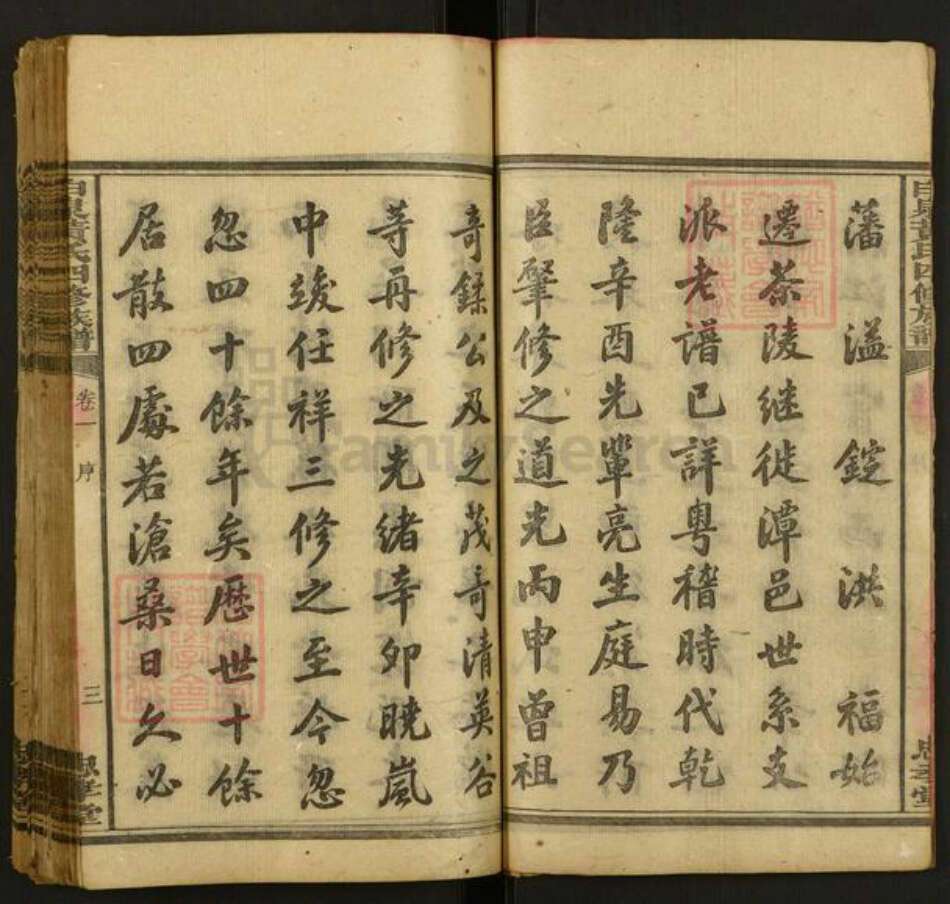 藩溢錠洪福始
遷茶陵继徙潭邑世系支
派老譜已詳粤稽時代乾
隆辛酉先輩亮生庭易乃
臣肇修之道光丙申曾祖
奇錄公及之茂奇清英谷
等再修之光緒辛卯曉嵐
中竣任祥三修之至今忽
忽四十餘年矣歷世十餘
居散四處若滄桑日久必
氏四修族譜
卷一
序
三
忠孝堂
FamilySearch